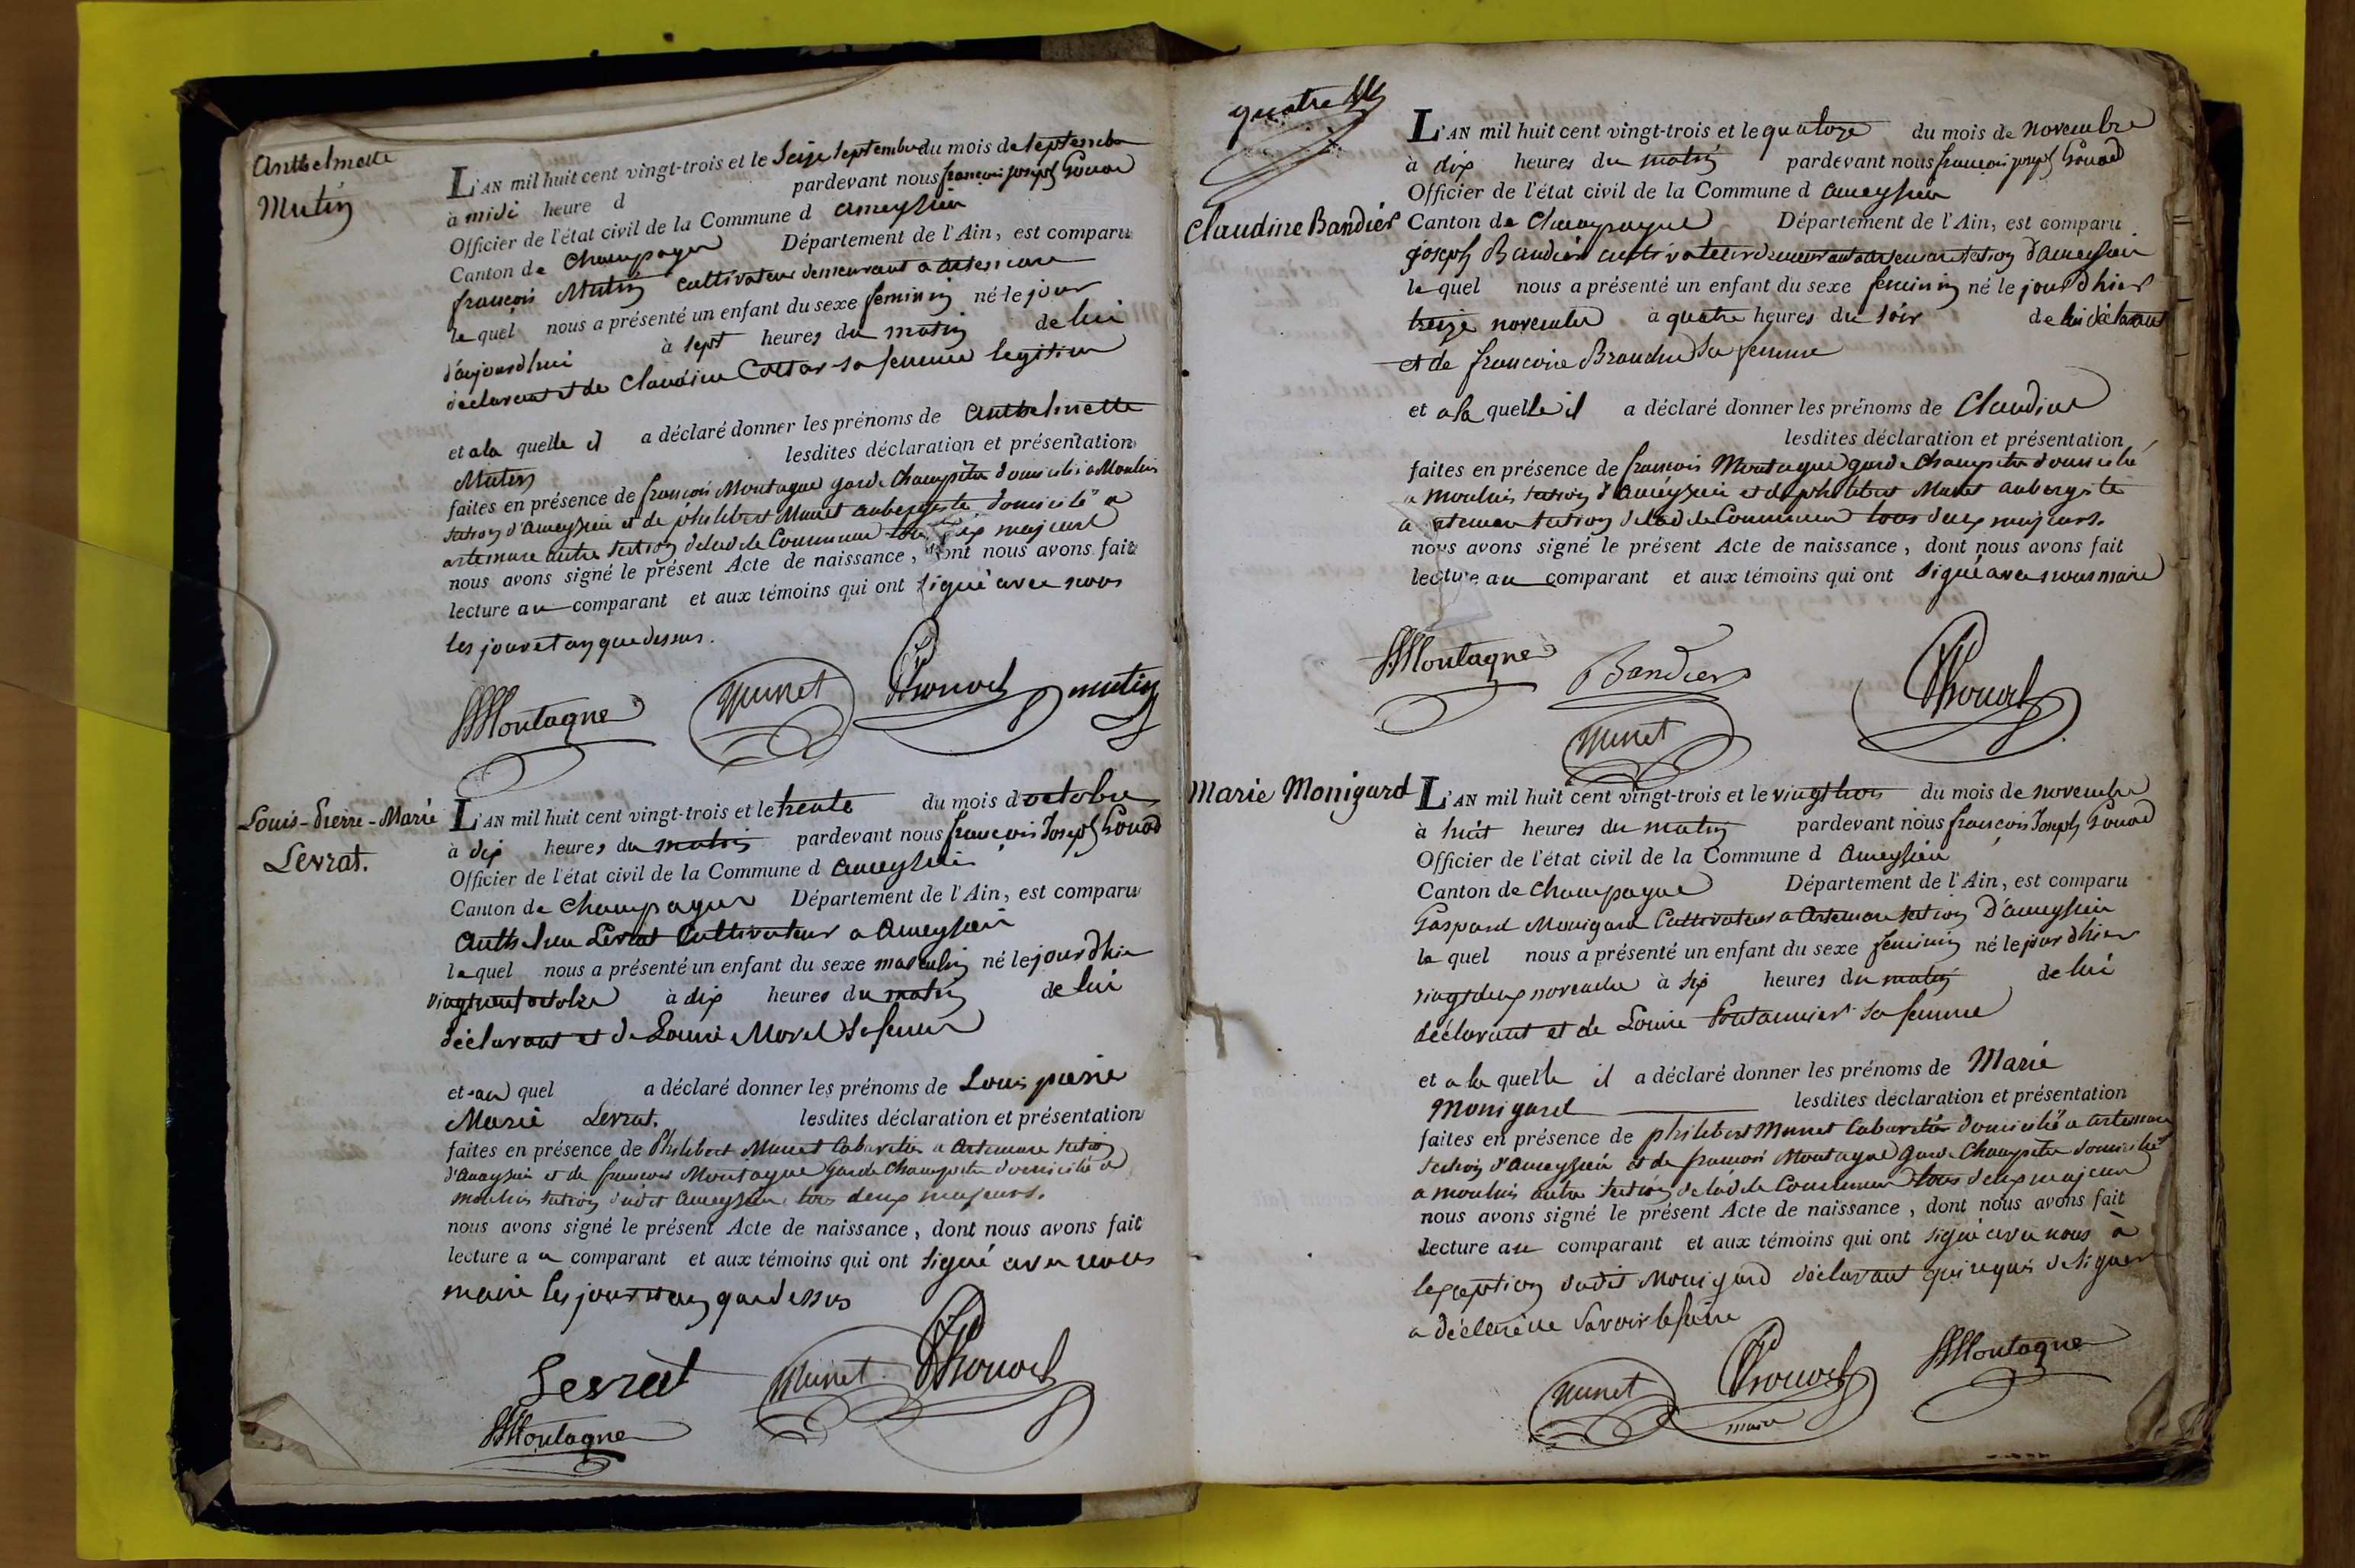 Anthelmette
Mutin
L'AN mil huit cent vingt-trois et le Seize septembre du mois de septembre
à midi heure d pardevant nous françois joseph Gonod
Officier de l'état civil de la Commune d ameyzieu
Canton de Champagne Département de l'Ain, est comparu
françois Mutin cultivateur demeurant a artemare
lequel nous a présenté un enfant du sexe feminin né le jour
d'aujourdhui à sept heures du matin de lui
déclarant et de Claudine sa femme legitime
et a la quelle il a déclaré donner les prénoms de anthelmette
Mutin lesdites déclaration et présentation
faites en présence de françois Montagne garde Champêtre domicilié a Moulin
section d'ameyzieu et de philibert Munet aubergiste domicilié a
artemare autre section de lad.te Commune majeurs
nous avons signé le présent Acte de naissance, dont nous avons fait
lecture au comparant et aux témoins qui ont signé avec nous
les jour et an que dessus.
Montagne Munet Gonod mutin
Louis-Pierre-Marie
Levrat.
L'AN mil huit cent vingt-trois et le trente du mois d octobre
à dix heures du matin pardevant nous françois Joseph Gonod
Officier de l'état civil de la Commune d ameyzieu
Canton de Champagne Département de l'Ain, est comparu
Anthelme Levrat Cultivateur a Ameyzieu
lequel nous a présenté un enfant du sexe masculin né le jour d'hier
vingt neuf octobre à dix heures du matin de lui
déclarant et de Louise Morel sa femme
et au quel a déclaré donner les prénoms de Louis pierre
Marie Levrat. lesdites déclaration et présentation
faites en présence de Philibert Munet Cabaretier a Artemare section
d'Ameyzieu et de françois Montagne Garde Champetre domicilié a
moulin section dudit Ameyzieu tous deux majeurs.
nous avons signé le présent Acte de naissance, dont nous avons fait
lecture a u comparant et aux témoins qui ont signé avec nous
maire les jour et an que dessus
Levrat Munet Gonod
Montagne
quatre
Claudine Bandier
L'AN mil huit cent vingt-trois et le quatorze du mois de novembre
à dix heures du matin pardevant nous françois joseph Gonod
Officier de l'état civil de la Commune d ameyzieu
Canton de Champagne Département de l'Ain, est comparu
joseph Bandier cultivateur demeurant a artemare section d'ameyzieu
lequel nous a présenté un enfant du sexe feminin né le jour d'hier
treize novembre à quatre heures du soir de lui déclarant
et de francoise sa femme
et a la quelle il a déclaré donner les prénoms de Claudine
lesdites déclaration et présentation
faites en présence de françois Montagne garde Champetre domicilié
a moulin section d'Ameyzieu et de philibert Munet aubergiste
a artemare section de lad.te Commune tous deux majeurs.
nous avons signé le présent Acte de naissance, dont nous avons fait
lecture au comparant et aux témoins qui ont signé avec nous maire
Montagne Bandier Gonod
Munet
Marie Monigard
L'AN mil huit cent vingt-trois et le vingt trois du mois de novembre
à huit heures du matin pardevant nous françois Joseph Gonod
Officier de l'état civil de la Commune d Ameyzieu
Canton de Champagne Département de l'Ain, est comparu
Gaspard Monigard Cultivateur a Artemare section D'ameyzieu
lequel nous a présenté un enfant du sexe feminin né le jour d'hier
vingt deux novembre à six heures du matin de lui
déclarant et de Louise sa femme
et a la quelle il a déclaré donner les prénoms de Marie
Monigard lesdites déclaration et présentation
faites en présence de philibert Munet Cabaretier domicilié a artemare
section d'Ameyzieu et de francois Montagne garde Champetre domicilié
a moulin autre section de lad.te Commune tous deux majeurs
nous avons signé le présent Acte de naissance, dont nous avons fait
lecture au comparant et aux témoins qui ont signé avec nous à
lexception dudit Monigard déclarant qui requis de signer
a déclaré ne savoir le faire
Munet Gonod Montagne
maire